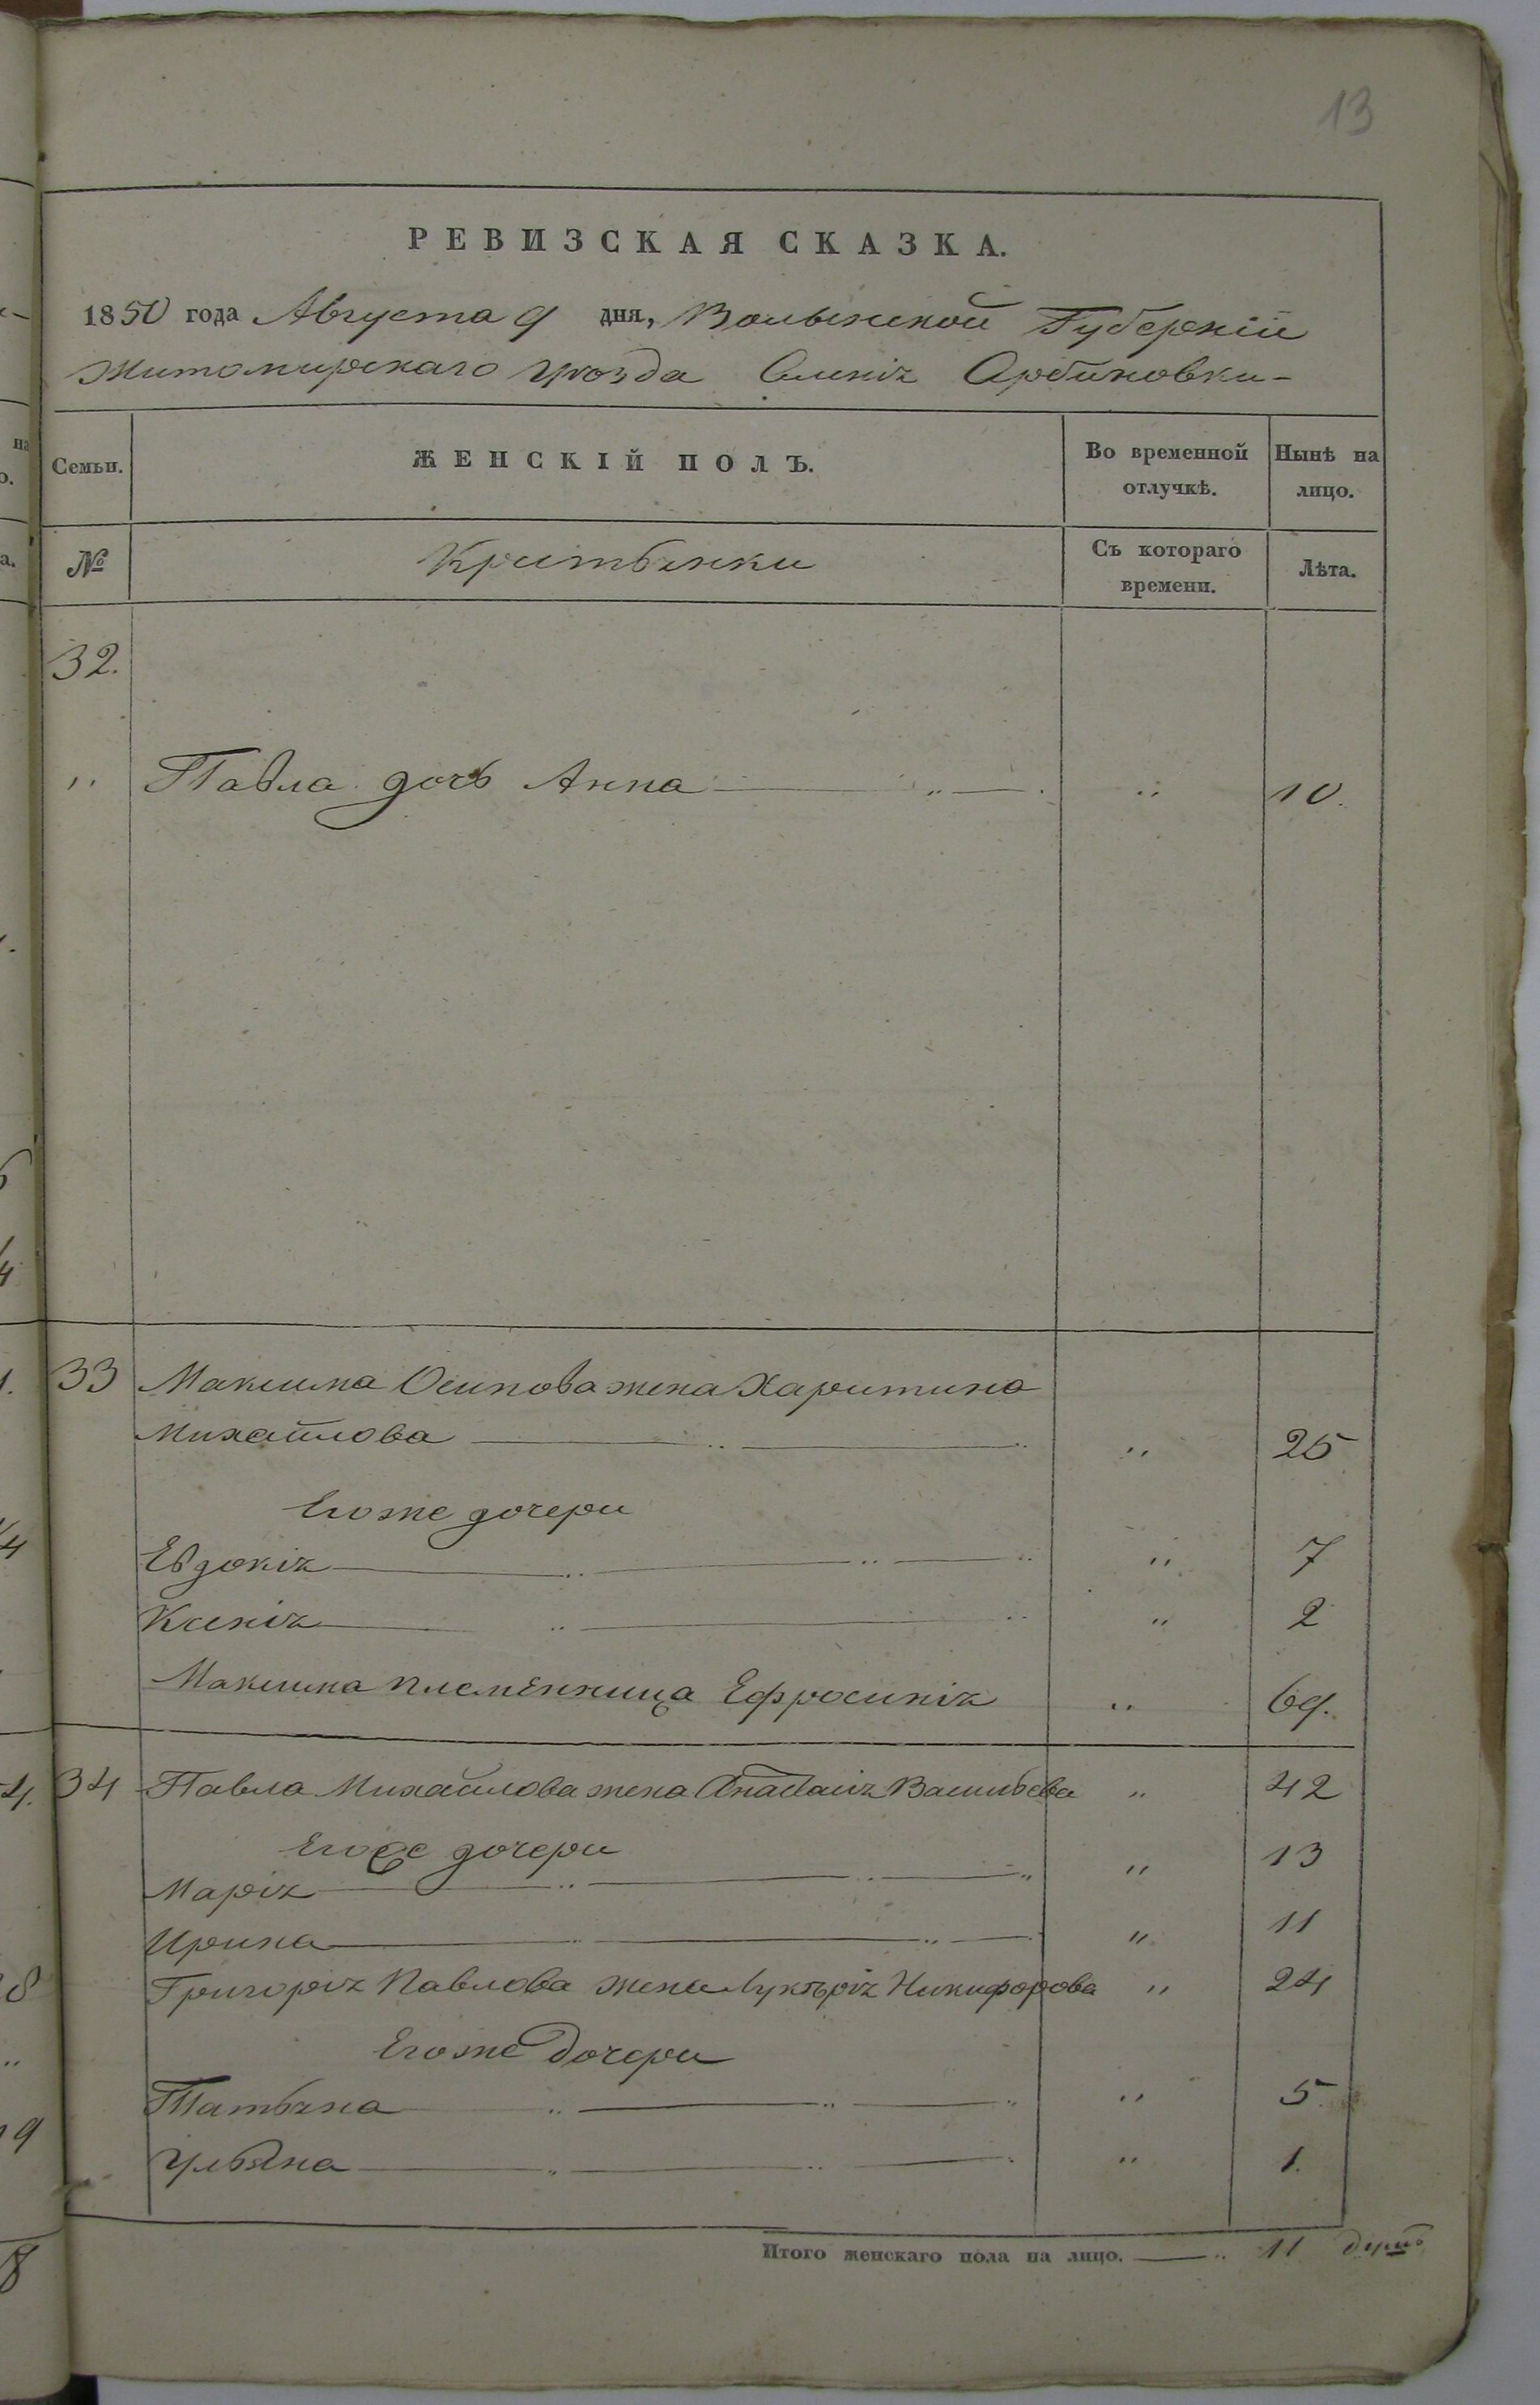 13
РЕВИЗСКАЯ СКАЗКА.
1850 года Августа 9 дня, Волынской Губерніи
Житомирскаго уѣзда Арбиновки-
Семьи. ЖЕНСКІЙ ПОЛЪ. Во временной отлучкѣ. Нынѣ на лицо.
№ Съ котораго времени. Лѣта.
32.
" Павла дочь Анна " " 10.
33 Максима Осипова жена Харитина
Михайлова " " " 25
Егоже дочери
Евдокія " " " 7
Ксенія " " " 2
Максима племенница Ефросинія "
34 Павла Михайлова жена Анастасія Васильева " 42
Егоже дочери
Марія " " " " 13
Ирина " " " 11
Григорія Павлова жена Лукерія Никифорова " 24
Егоже дочери
Татьяна " " " " 5.
Ульяна " " " " 1.
Итого женскаго пола на лицо. " 11 душъ